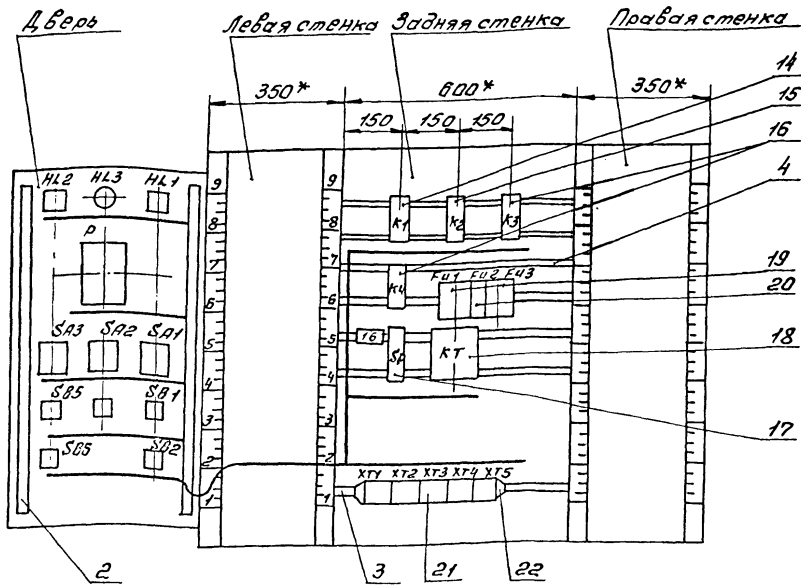 Дверь
Левая стенка
Задняя стенка
Правая стенка
350*
600*
350*
150 150 150
14
15
16
4
19
20
18
17
HL2 HL3 HL1
P
SA3 SA2 SA1
SB5 SB1
SB5 SB2
9
8
7
6
5
4
3
2
1
9
8
7
6
5
4
3
2
1
K1 K2 K3
K4
FU1 FU2 FU3
16
SF
KT
XT1 XT2 XT3 XT4 XT5
2
3
21
22